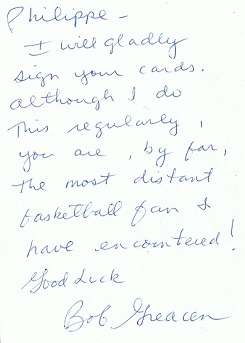 Philippe -
I will gladly
sign your cards.
although I do
this regularly,
you are, by far,
the most distant
basketball fan I
have encountered!
Good Luck
Bob Greacen